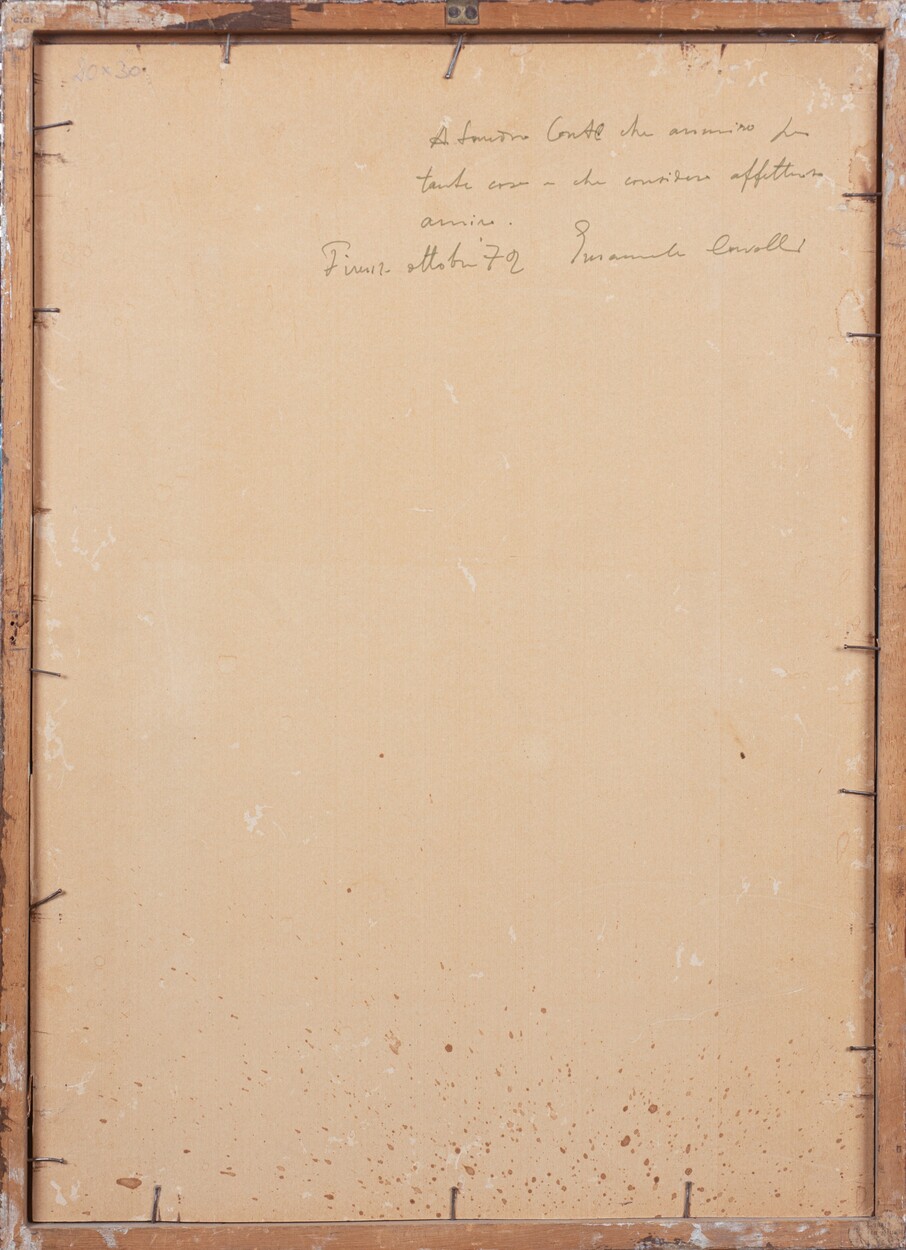 40x30
A Sandro Conte che ammiro per
tante cose e che considero affettuoso
amico.
Firenze ottobre '72 Emanuele Cavalli